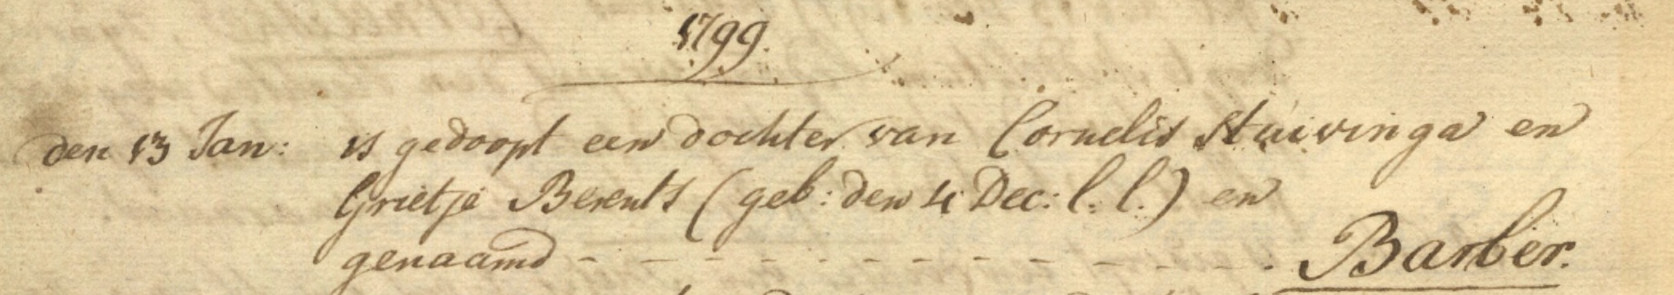 1799.
den 13 Jan: is gedoopt een dochter van Cornelis Stuivinga en
Grietje Berents (geb: den 4 Dec: l. l.) en
genaamd - - - - - - - - - - - - - Barber.